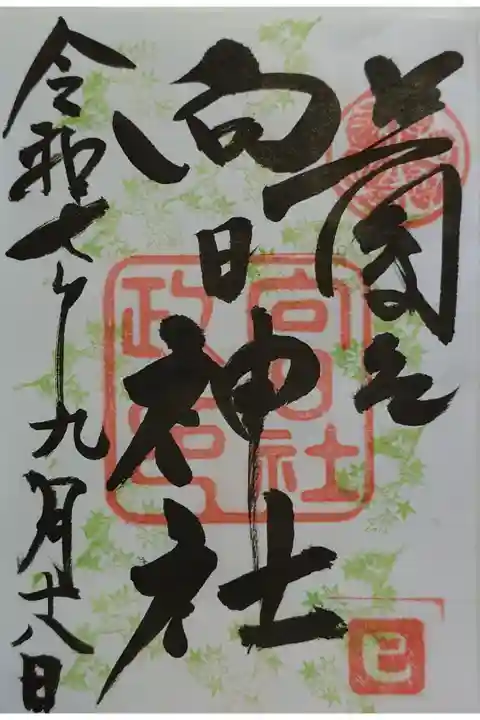 向日神社
令和七年九月十八日
向日社
政
巳